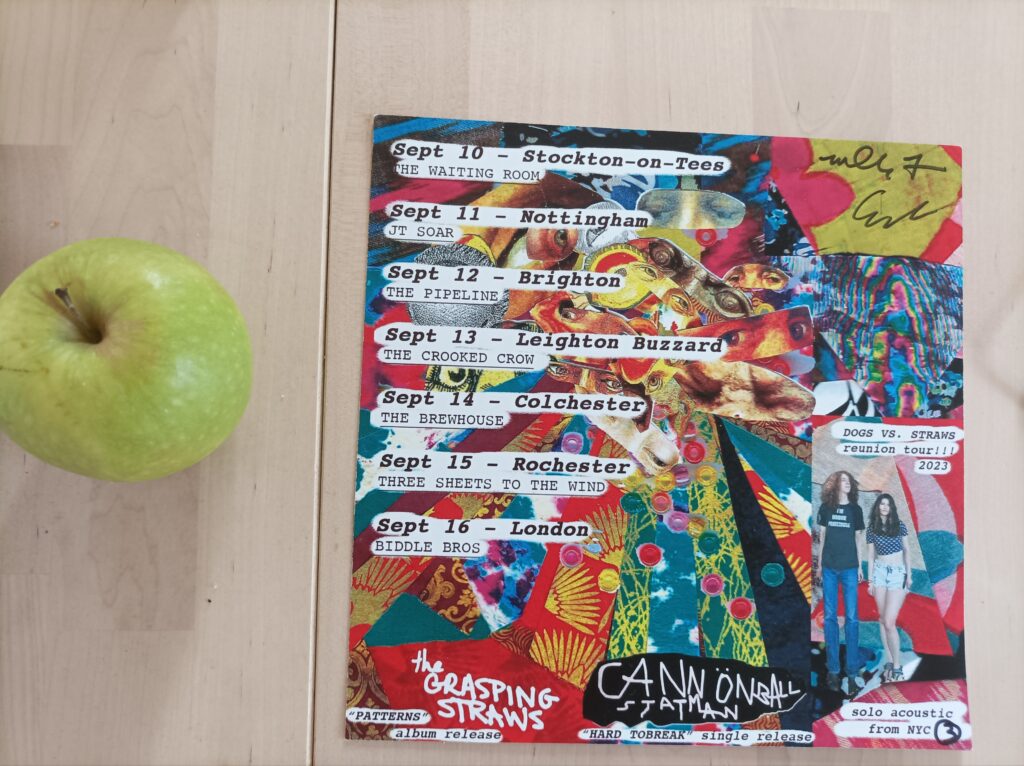 Sept 10 - Stockton-on-Tees
THE WAITING ROOM
Sept 11 - Nottingham
JT SOAR
Sept 12 - Brighton
THE PIPELINE
Sept 13 - Leighton Buzzard
THE CROOKED CROW
Sept 14 - Colchester
THE BREWHOUSE
Sept 15 - Rochester
THREE SHEETS TO THE WIND
Sept 16 - London
BIDDLE BROS
DOGS VS. STRAWS
reunion tour!!!
2023
the
GRASPING
STRAWS
"PATTERNS"
album release
CANNÖNBALL
STATMAN
"HARD TOBREAK" single release
solo acoustic
from NYC 3